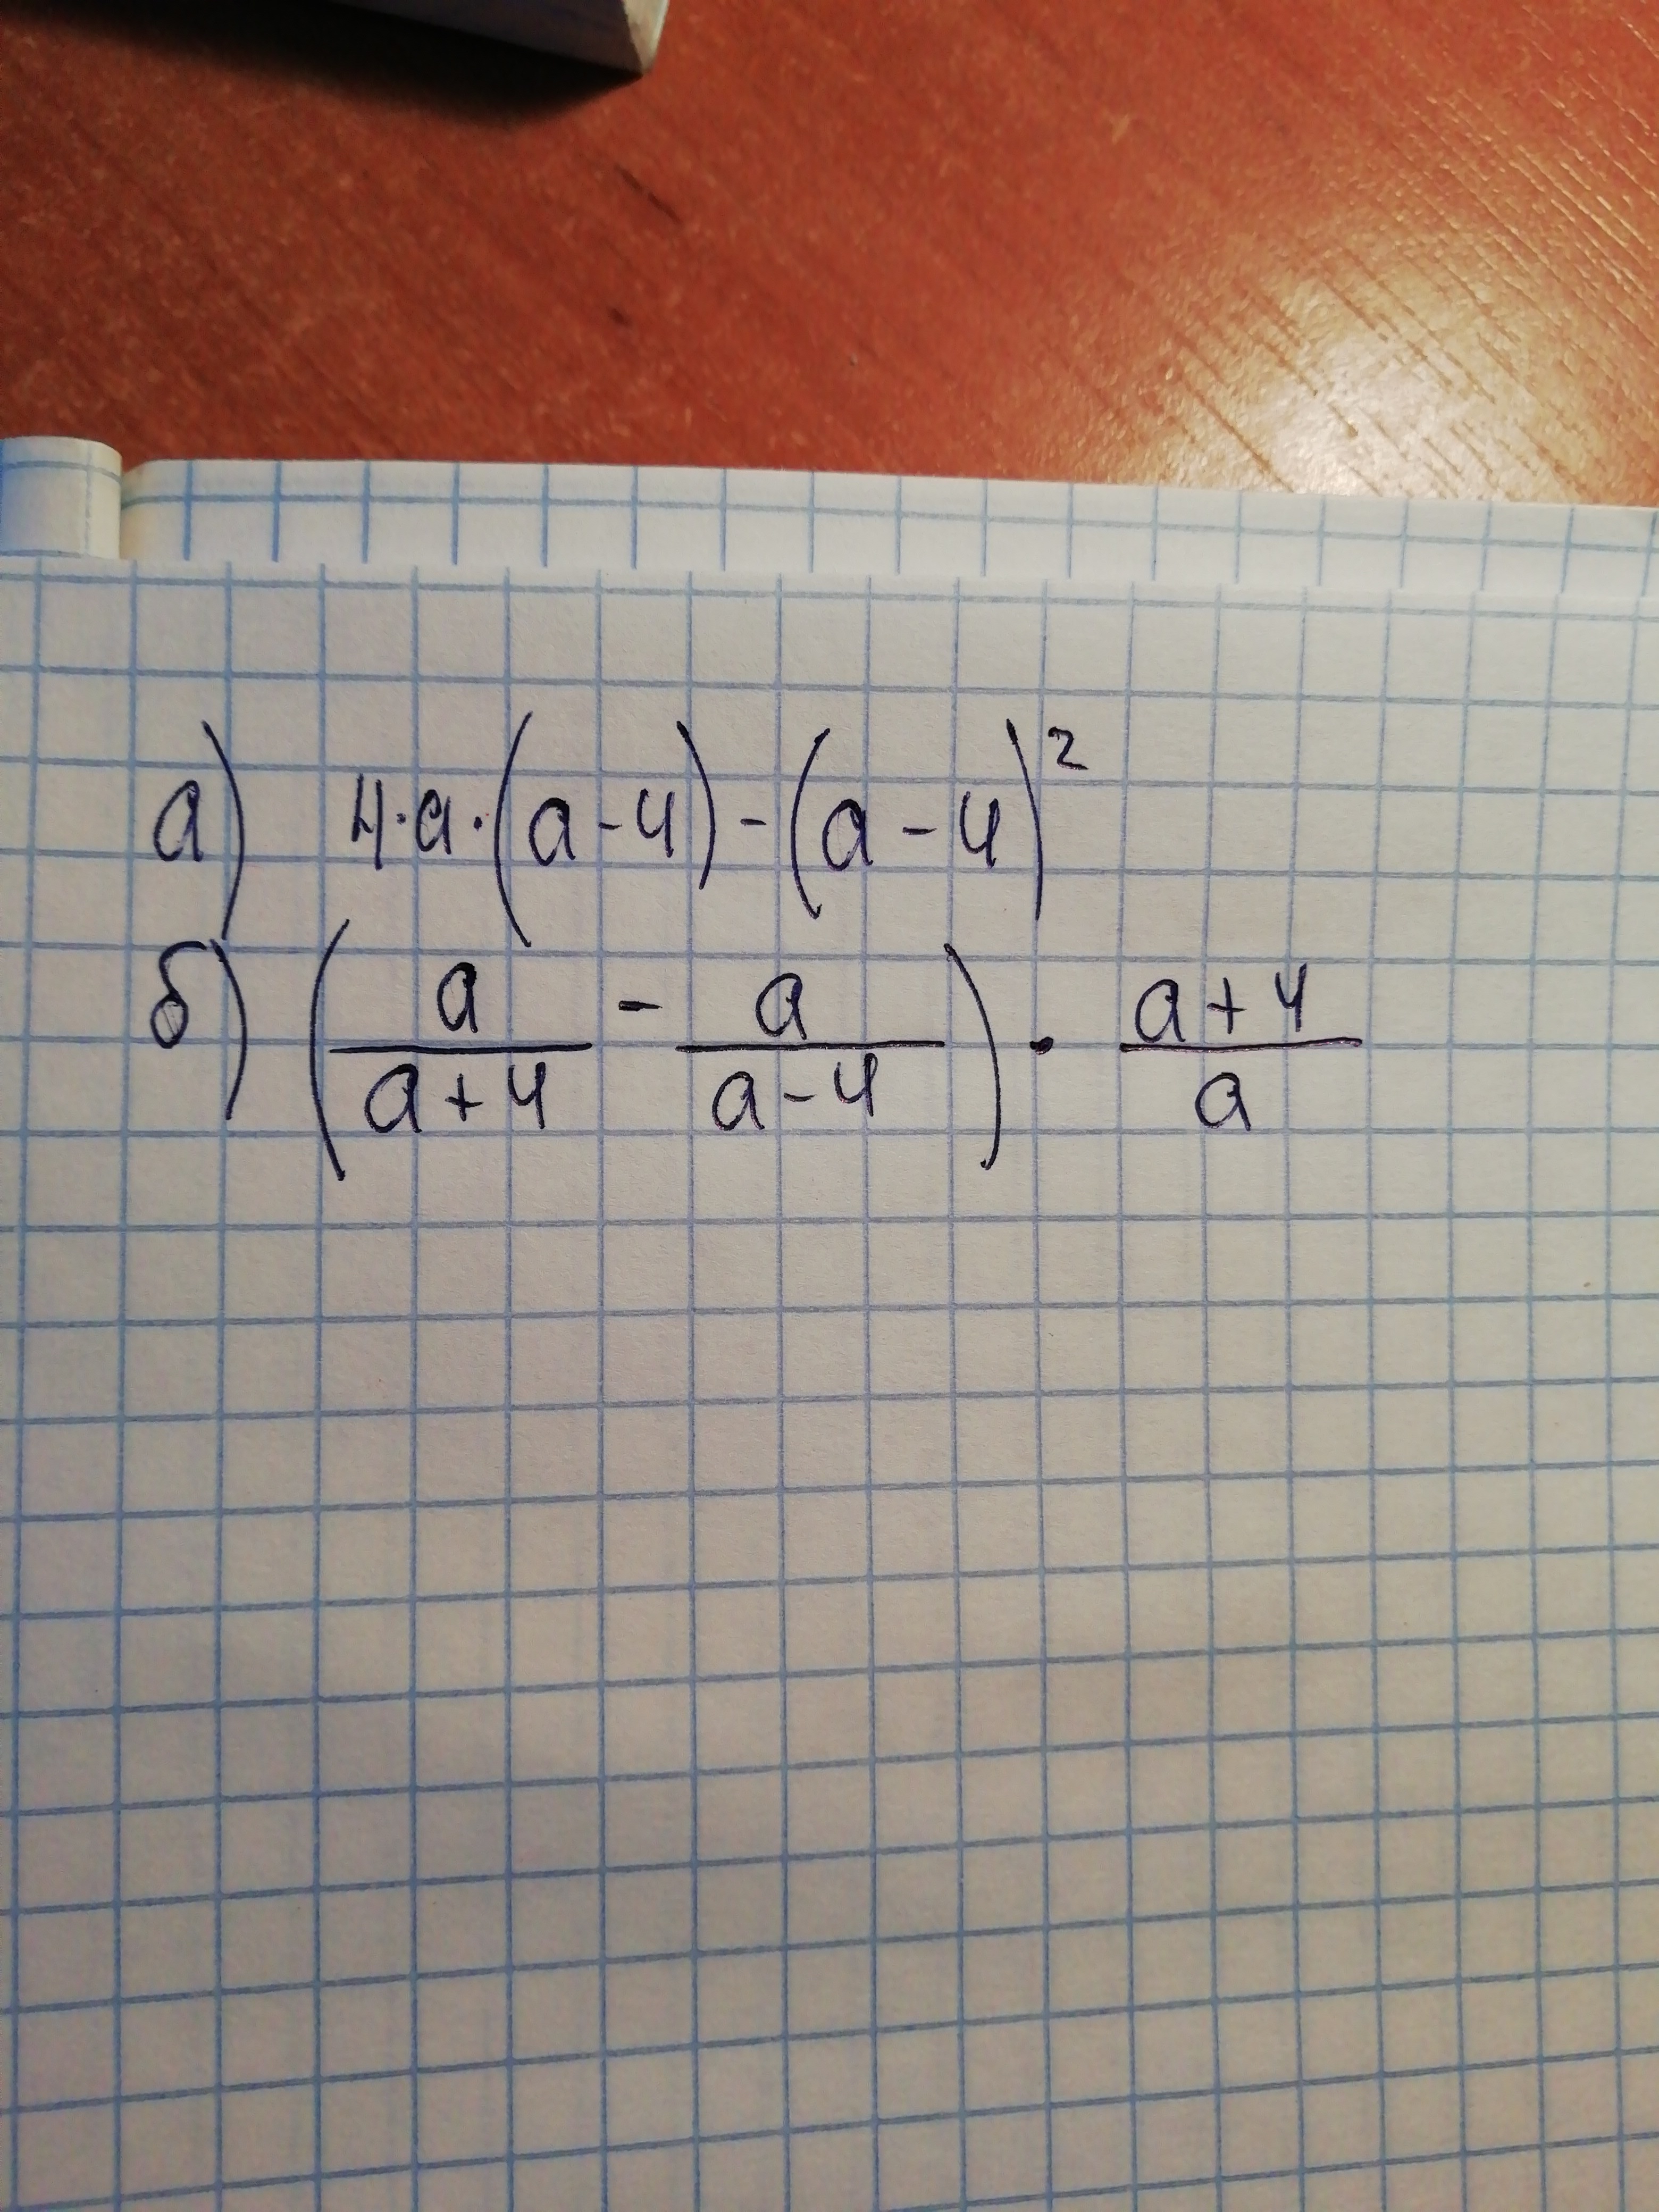 а) 4·a·(a-4)-(a-4)²
б) (a/(a+4) - a/(a-4)) · (a+4)/a